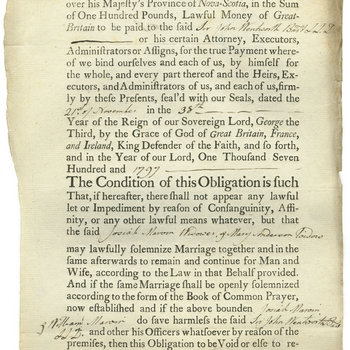 over his Majesty's Province of Nova-Scotia, in the Sum
of One Hundred Pounds, Lawful Money of Great-
Britain to be paid to the said Sir John Wentworth
or his certain Attorney, Executors,
Administrators or Assigns, for the true Payment where-
of we bind ourselves and each of us, by himself for
the whole, and every part thereof and the Heirs, Ex-
ecutors, and Administrators of us, and each of us, firm-
ly by these Presents, seal'd with our Seals, dated the
21st of November in the 38th
Year of the Reign of our Sovereign Lord, George the
Third, by the Grace of God of Great Britain, France,
and Ireland, King Defender of the Faith, and so forth,
and in the Year of our Lord, One Thousand Seven
Hundred and 1797
The Condition of this Obligation is such
That, if hereafter, there shall not appear any lawful
let or Impediment by reason of Consanguinity, Affi-
nity, or any other lawful means whatever, but that
the said Josiah Marvin Widower & Mary Anderson
may lawfully solemnize Marriage together and in the
same afterwards to remain and continue for Man and
Wife, according to the Law in that Behalf provided.
And if the same Marriage shall be openly solemnized
according to the form of the Book of Common Prayer,
now established and if the above bounden Josiah Marvin
& William Marvin do save harmless the said Sir John Wentworth
and other his Officers whatsoever by reason of the
premises, then this Obligation to be Void or else to re-